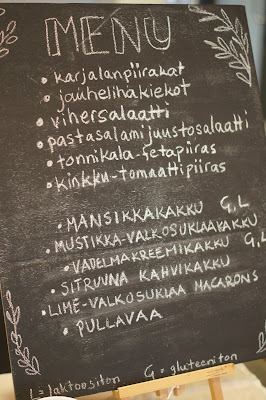 MENU
• karjalanpiirakat
• jauhelihakiekot
• vihersalaatti
• pastasalamijuustosalaatti
• tonnikala-fetapiiras
• kinkku-tomaattipiiras
• MANSIKKAKAKKU G, L
• MUSTIKKA-VALKOSUKLAAKAKKU
• VADELMAKREEMIKAKKU G, L
• SITRUUNA KAHVIKAKKU
• LIME-VALKOSUKLAA MACARONS
• PULLAVAA
L = laktoositon G = gluteeniton